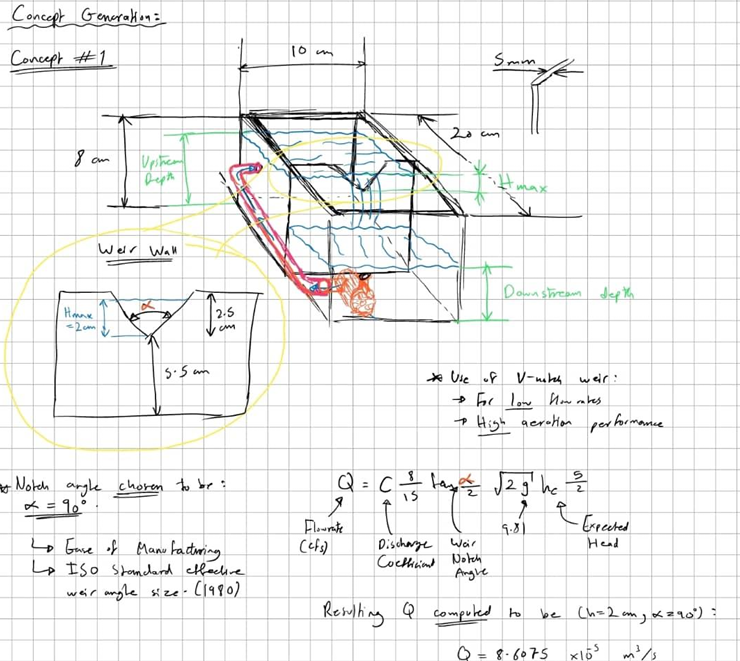 Concept Generation:
Concept #1
10 cm
5mm
20 cm
8 cm
Upstream
Depth
Hmax
Weir Wall
Downstream depth
Hmax
=2cm
α
2.5
cm
5.5 cm
* Use of V-notch weir:
→ For low flowrates
→ High aeration performance
* Notch angle chosen to be:
α = 90°.
↳ Ease of Manufacturing
↳ ISO Standard effective
weir angle size. (1980)
Q = C 8/15 tan α/2 √2g hc 5/2
Flowrate
(cfs)
Discharge
Coefficient
Weir
Notch
Angle
9.81
Expected
Head
Resulting Q computed to be (h=2cm, α=90°):
Q = 8.6075 ×10⁻⁵ m³/s